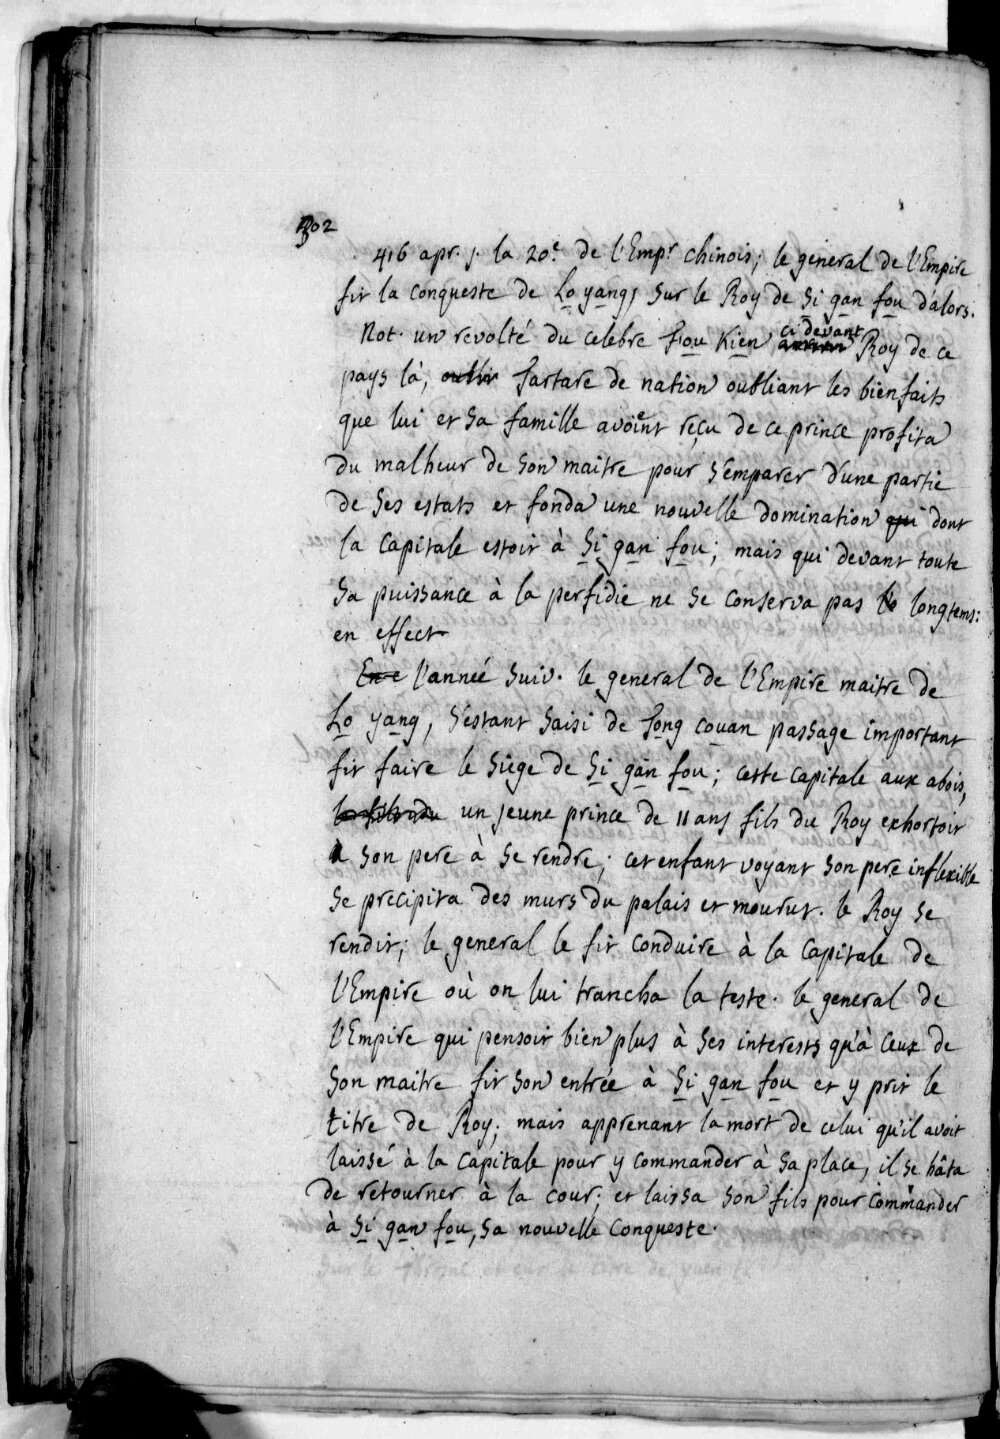 302
416 apr. j. la 20e. de l'Empr chinois; le general de l'Empire
fit la conqueste de Lo yang, sur le Roy de Si gan fou d'alors.
Not. un revolté du celebre fou Kien ci devant Roy de ce
pays là, tartare de nation oubliant les bienfaits
que lui et sa famille avoient reçu de ce prince profita
du malheur de son maitre pour s'emparer d'une partie
de ses estats et fonda une nouvelle domination qui dont
la capitale estoit à Si gan fou; mais qui devant toute
sa puissance à la perfidie ne se conserva pas longtems:
en effect
En e l'année suiv. le general de l'Empire maitre de
Lo yang, s'estant saisi de Tong couan passage important
fit faire le siege de Si gan fou; cette capitale aux abois,
un jeune prince de 11 ans fils du Roy exhortoit
son pere à se rendre; cet enfant voyant son pere inflexible
se precipita des murs du palais et mourut. le Roy se
rendit; le general le fit conduire à la capitale de
l'Empire où on lui trancha la teste. le general de
l'Empire qui pensoit bien plus à ses interests qu'à ceux de
son maitre fit son entrée à Si gan fou et y prit le
titre de Roy; mais apprenant la mort de celui qu'il avoit
laissé à la capitale pour y commander à sa place, il se hâta
de retourner à la cour; et laissa son fils pour commander
à Si gan fou, sa nouvelle conqueste.